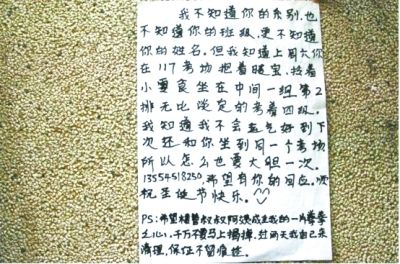 我不知道你的系别,也
不知道你的班级,更不知道
你的姓名。但我知道上周六你
在117考场抱着暖宝,拎着
小熏良坐在中间一组第2
排无比淡定的考着四级。
我知道我不会运气好到下
次还和你坐到同一个考场
所以怎么也要大胆一次。
13554518250,希望有你的回应。顺
祝圣诞节快乐。
PS:希望楼管叔叔阿姨成全我的一片拳拳
之心,千万不要马上揭掉,过两天我自己来
清理,保证不留痕迹。